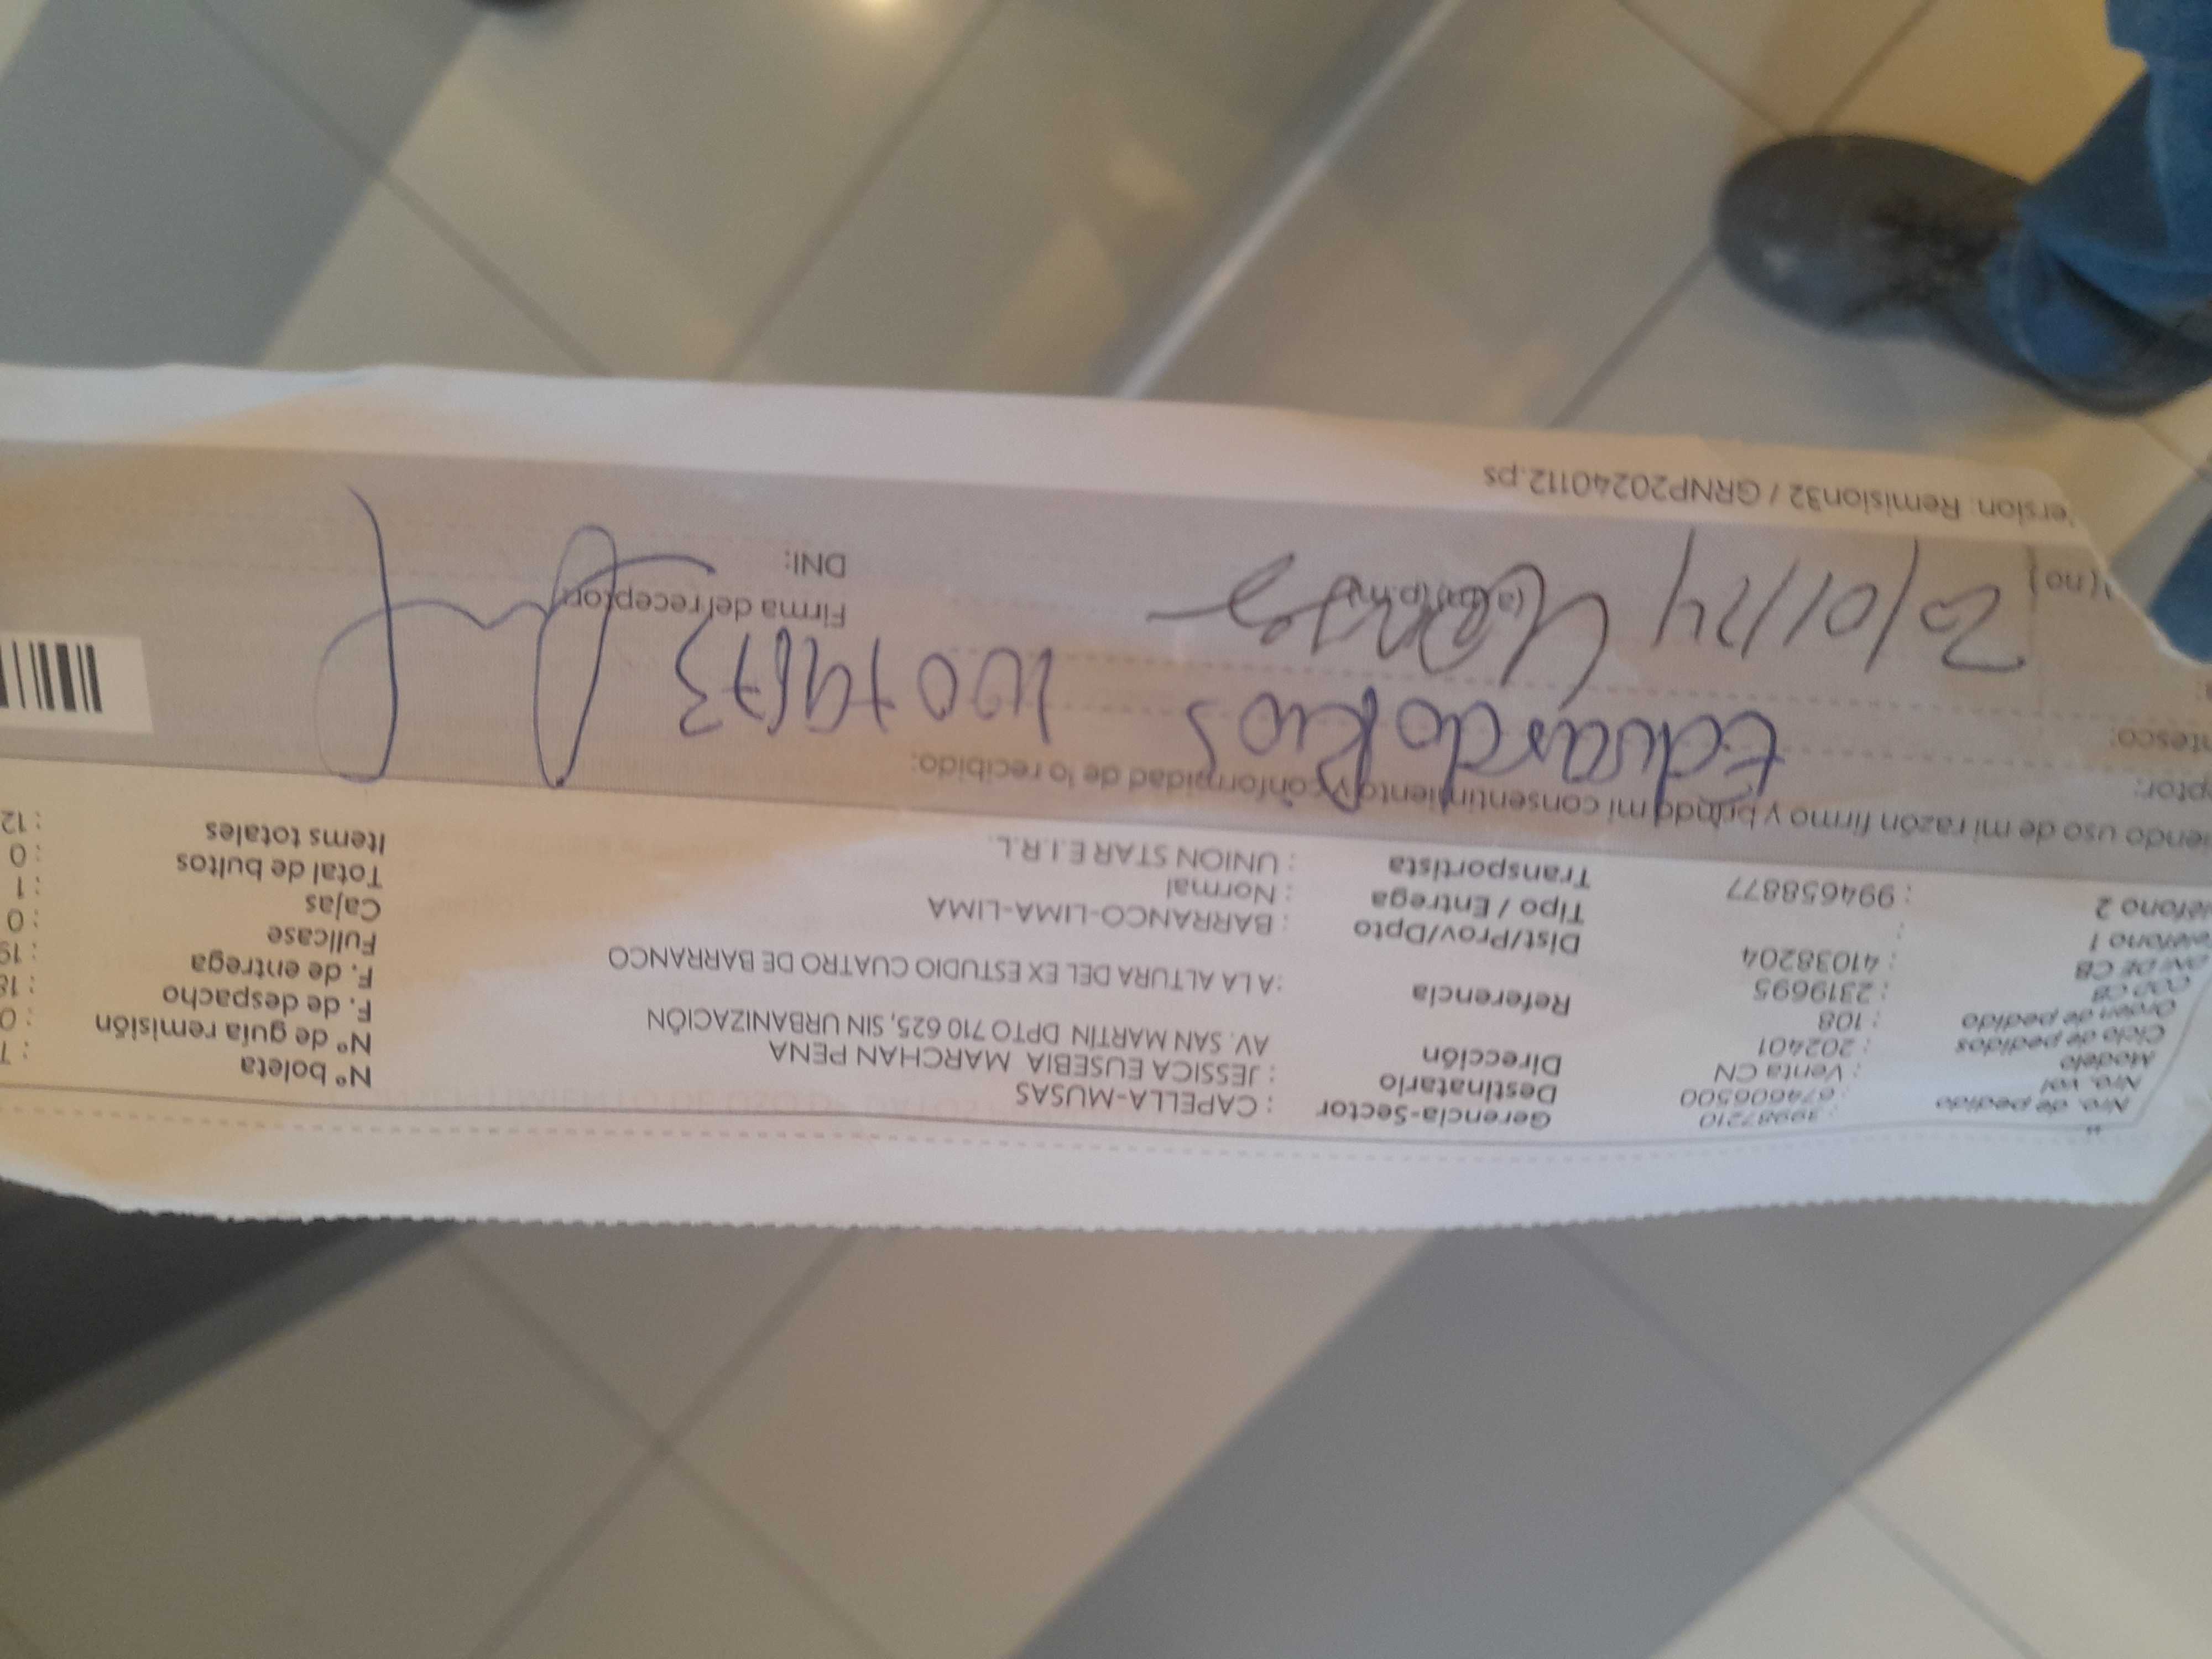 Nro. de pedido : 39987210 Gerencia-Sector : CAPELLA-MUSAS Nº boleta :
Nro. vol : 674606500 Destinatario : JESSICA EUSEBIA MARCHAN PENA Nº de guía remisión : 0
Modelo : Venta CN Dirección AV. SAN MARTÍN DPTO 710 625, SIN URBANIZACIÓN F. de despacho : 18
Ciclo de pedidos : 202401 F. de entrega : 19
Orden de pedido : 108 Referencia : A LA ALTURA DEL EX ESTUDIO CUATRO DE BARRANCO Fullcase : 0
COD CB : 2319695 Dist/Prov/Dpto : BARRANCO-LIMA-LIMA Cajas : 1
DNI DE CB : 41038204 Tipo / Entrega : Normal Total de bultos : 0
eléfono 1 : Transportista : UNION STAR E.I.R.L. Items totales : 12
eléfono 2 : 994658877
iendo uso de mi razón firmo y brindo mi consentimiento y conformidad de lo recibido:
eptor:
Eduardo Rios
ntesco:
Firma del receptor:
DNI:
ersion: Remision32 / GRNP20240112.ps